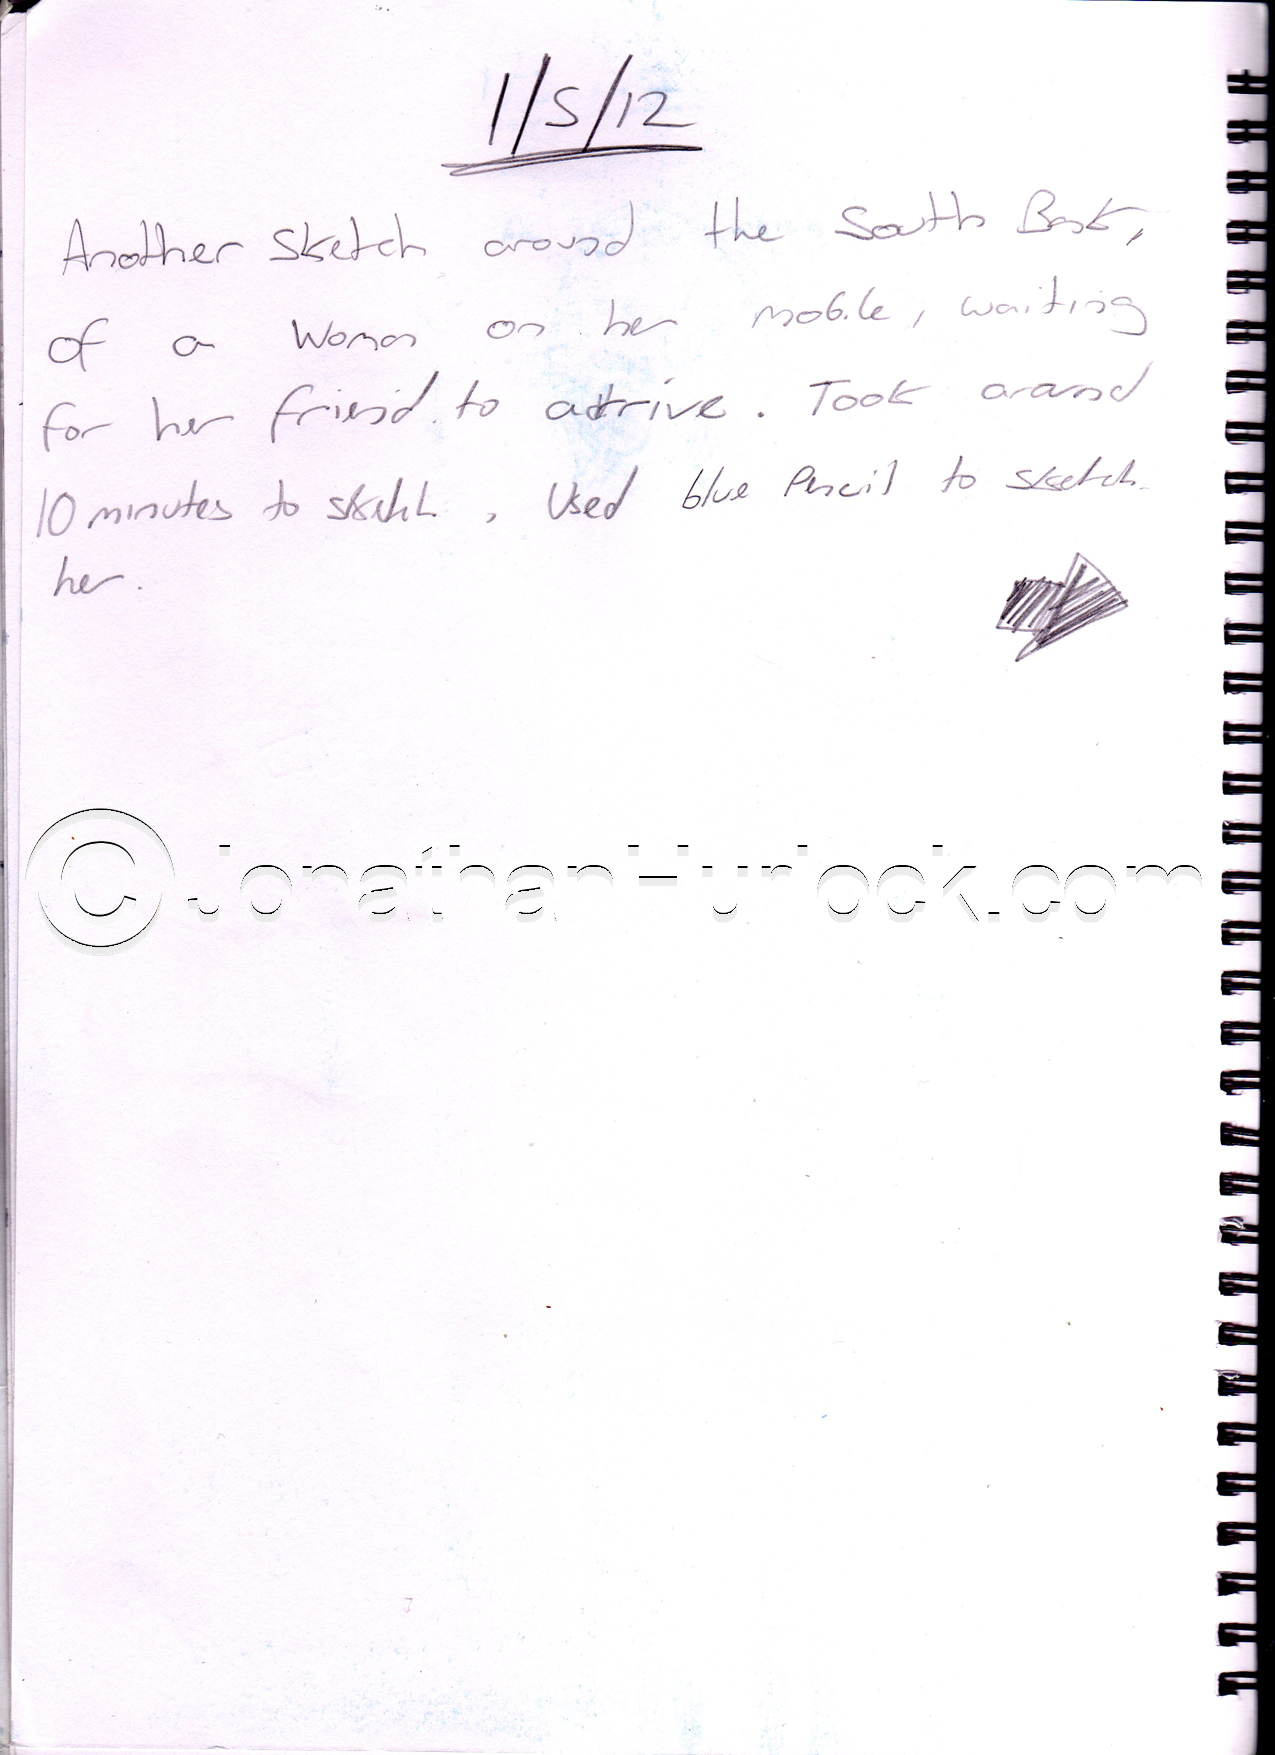 1/5/12
Another sketch around the South Bank,
of a woman on her mobile, waiting
for her friend to arrive. Took around
10 minutes to sketch, Used blue Pencil to sketch
her.
© JonathanHurlock.com